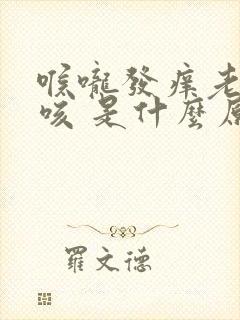 喉嚨發痒老
咳是什麼原
羅文德